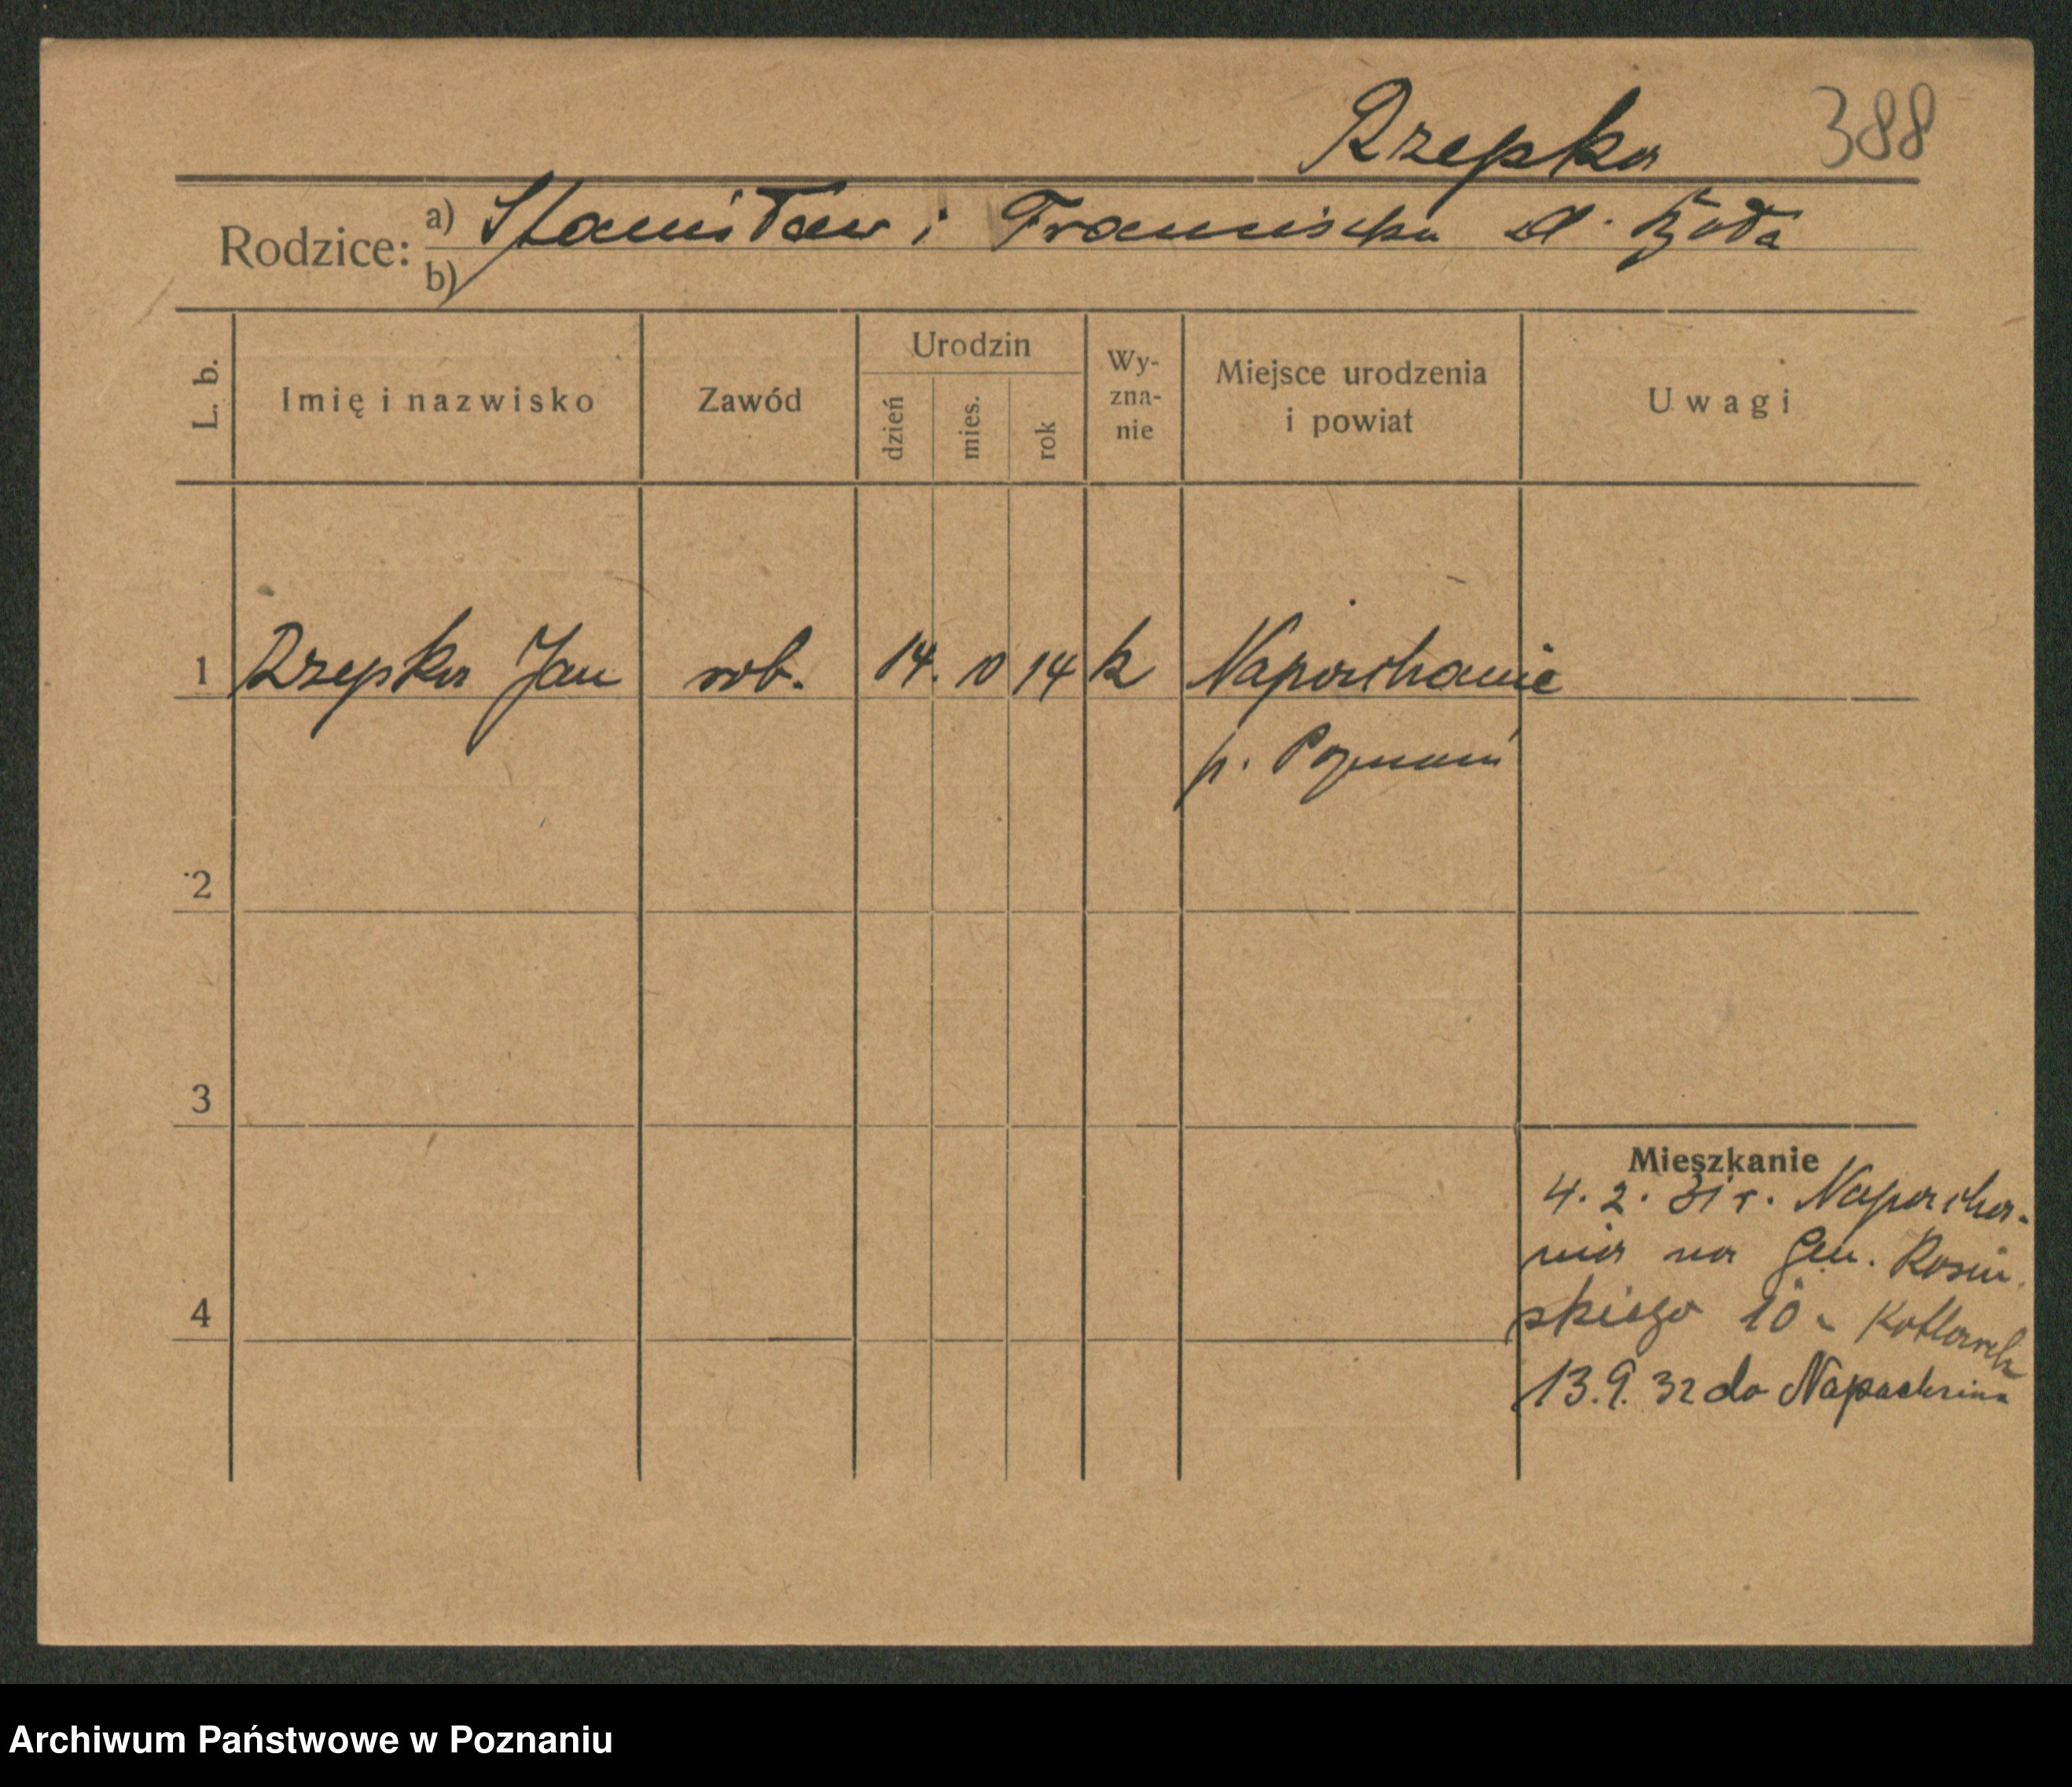 Rzepka 388
Rodzice: a) Stanisław i Franciszka d.
b)
L. b. Imię i nazwisko Zawód Urodzin dzień mies. rok Wy-zna-nie Miejsce urodzenia i powiat Uwagi
1 Rzepka Jan rob. 14. 10 14 k Napachanie
p. Poznań
2
3
Mieszkanie
4. 2. 31 r. Napacha-
nia na Gen. Kosiń
4 skiego 10 -
13. 9. 32 do Napachania
Archiwum Państwowe w Poznaniu